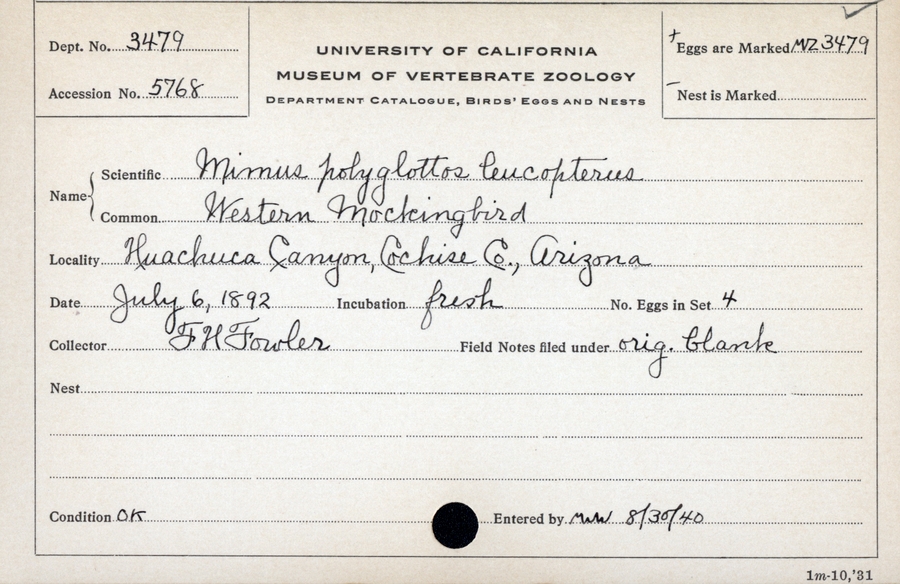 Dept. No. 3479
Accession No. 5768
UNIVERSITY OF CALIFORNIA
MUSEUM OF VERTEBRATE ZOOLOGY
DEPARTMENT CATALOGUE, BIRDS' EGGS AND NESTS
+ Eggs are Marked MVZ 3479
– Nest is Marked
Name
Scientific Mimus polyglottos leucopterus
Common Western Mockingbird
Locality Huachuca Canyon, Cochise Co., Arizona
Date July 6, 1892 Incubation fresh No. Eggs in Set 4
Collector F H Fowler Field Notes filed under orig. blank
Nest
Condition OK Entered by 8/30/40
1m-10,'31